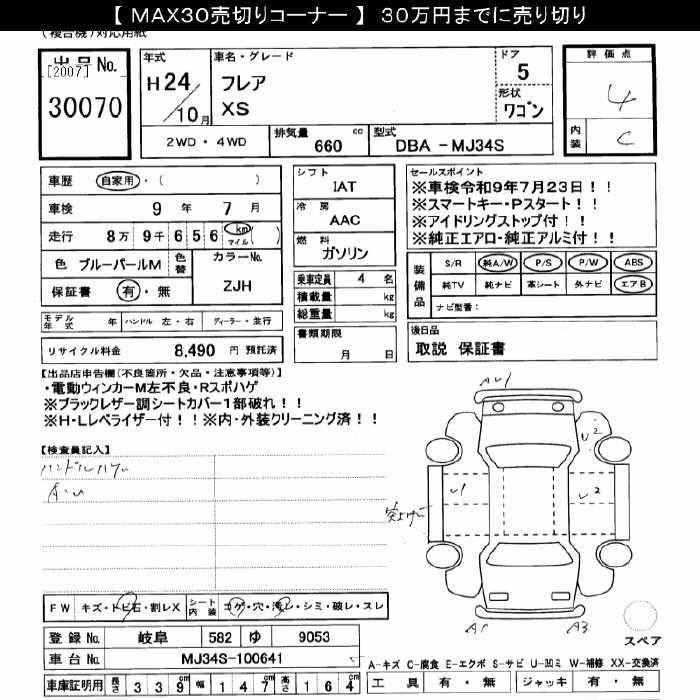 【 MAX30売切りコーナー 】 30万円までに売り切り
(複合機)対応用紙
出品No.
[2007]
30070
年式
H24/10月
車名・グレード
フレア
XS
ドア
5
形状
ワゴン
評価点
4
内装
C
2WD・4WD
排気量 660 cc
型式 DBA－MJ34S
車歴 自家用・( )
車検 9年 7月
走行 8万 9千 6 5 6 km マイル( )
色 ブルーパールM 色替
カラーNo.
ZJH
保証書 有・無
シフト
IAT
冷房
AAC
燃料
ガソリン
乗車定員 4 名
積載量 kg
総重量 kg
セールスポイント
※車検令和9年7月23日！！
※スマートキー・Pスタート！！
※アイドリングストップ付！！
※純正エアロ・純正アルミ付！！
装備品
S/R 純A/W P/S P/W ABS
純TV 純ナビ 革シート 外ナビ エアB
ナビ型番：
モデル年式 年 ハンドル 左・右 ディーラー・並行
リサイクル料金 8,490 円 預託済
書類期限
月 日
後日品
取説 保証書
【出品店申告欄(不良箇所・欠品・注意事項等)】
・電動ウィンカーM左不良・Rスポハゲ
※ブラックレザー調シートカバー1部破れ！！
※H・Lレベライザー付！！※内・外装クリーニング済！！
【検査員記入】
ハンドルハゲ
A・U
AU1
U2
U1
U2
A1
A3
スペア
FW キズ・トビ石・割レX シート内装 コゲ・穴・汚レ・シミ・破レ・スレ
登録No. 岐阜 582 ゆ 9053
車台No. MJ34S-100641
A-キズ C-腐食 E-エクボ S-サビ U-凹ミ W-補修 XX-交換済
車庫証明用 長さ 339cm 幅 147cm 高さ 164cm
工具 有・無 ジャッキ 有・無